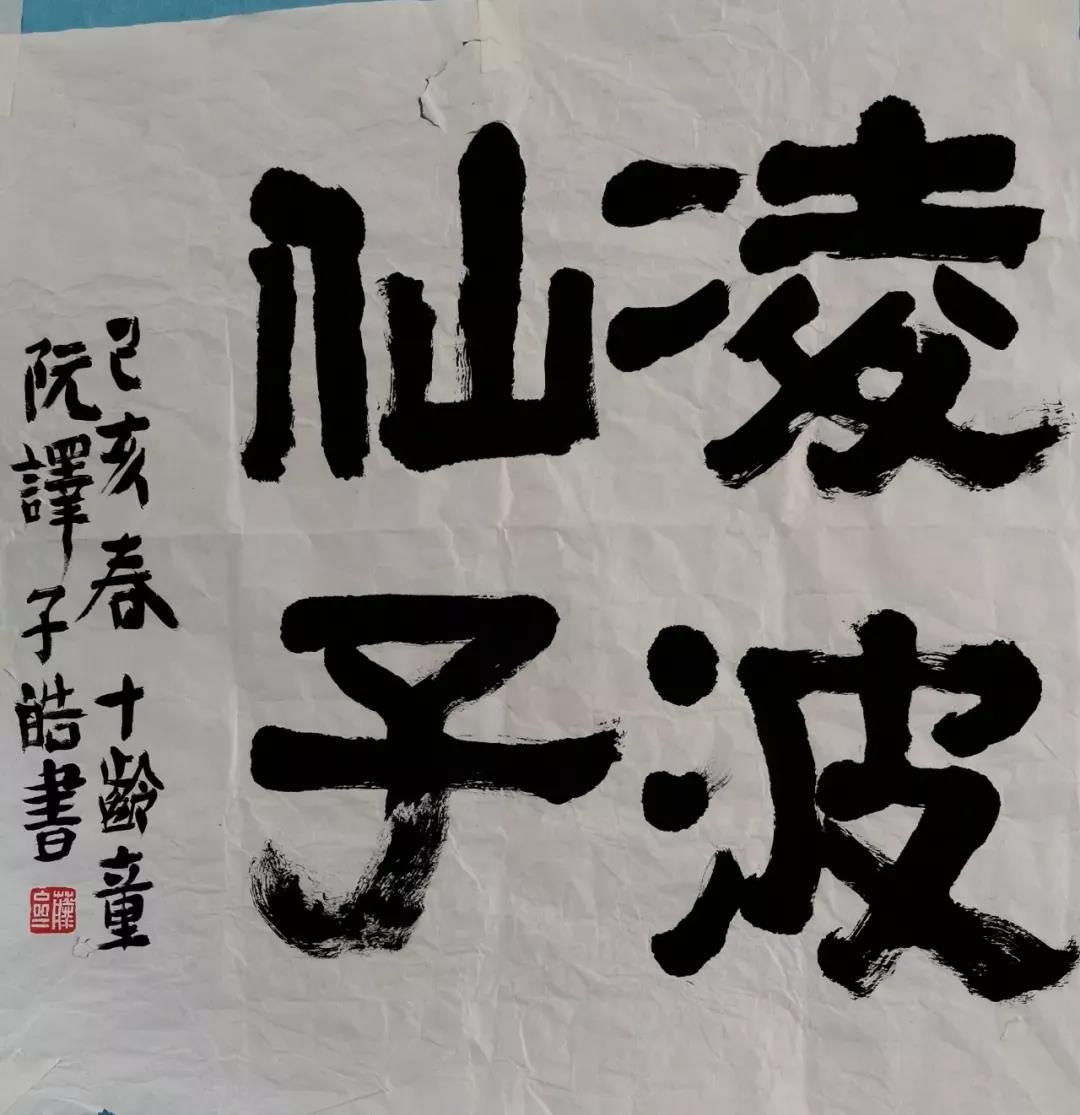 凌波
仙子
己亥春十齡童
阮譯子皓書